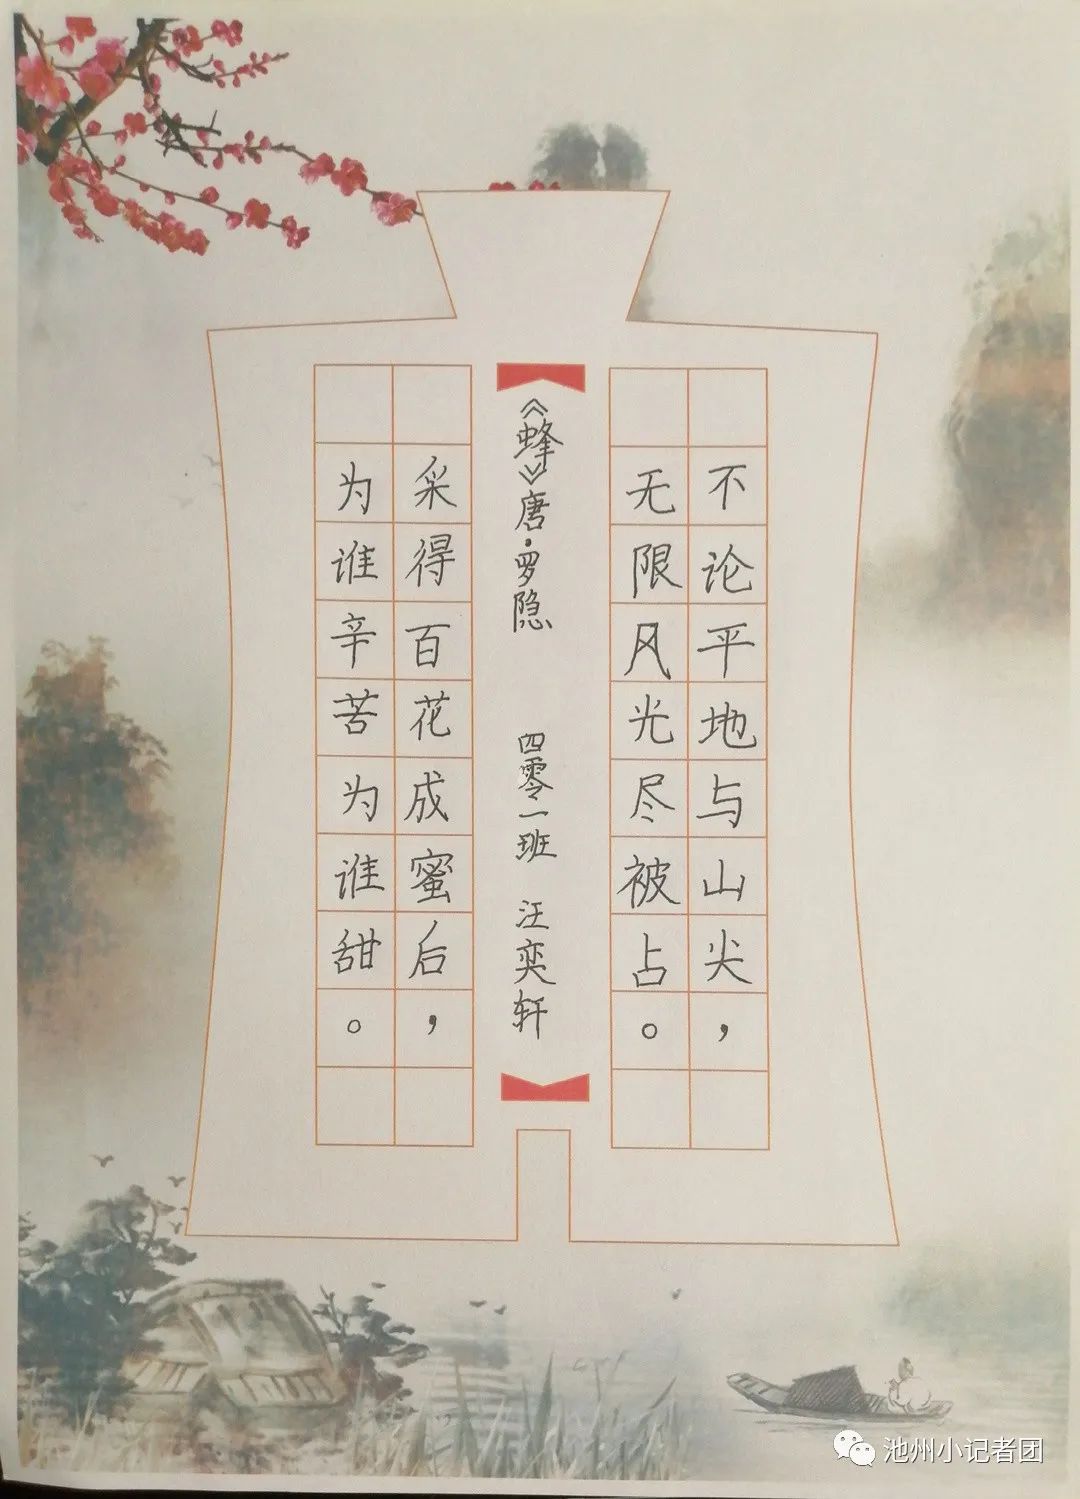 不论平地与山尖，
无限风光尽被占。
《蜂》唐·罗隐 四零一班 汪奕轩
采得百花成蜜后，
为谁辛苦为谁甜。
池州小记者团